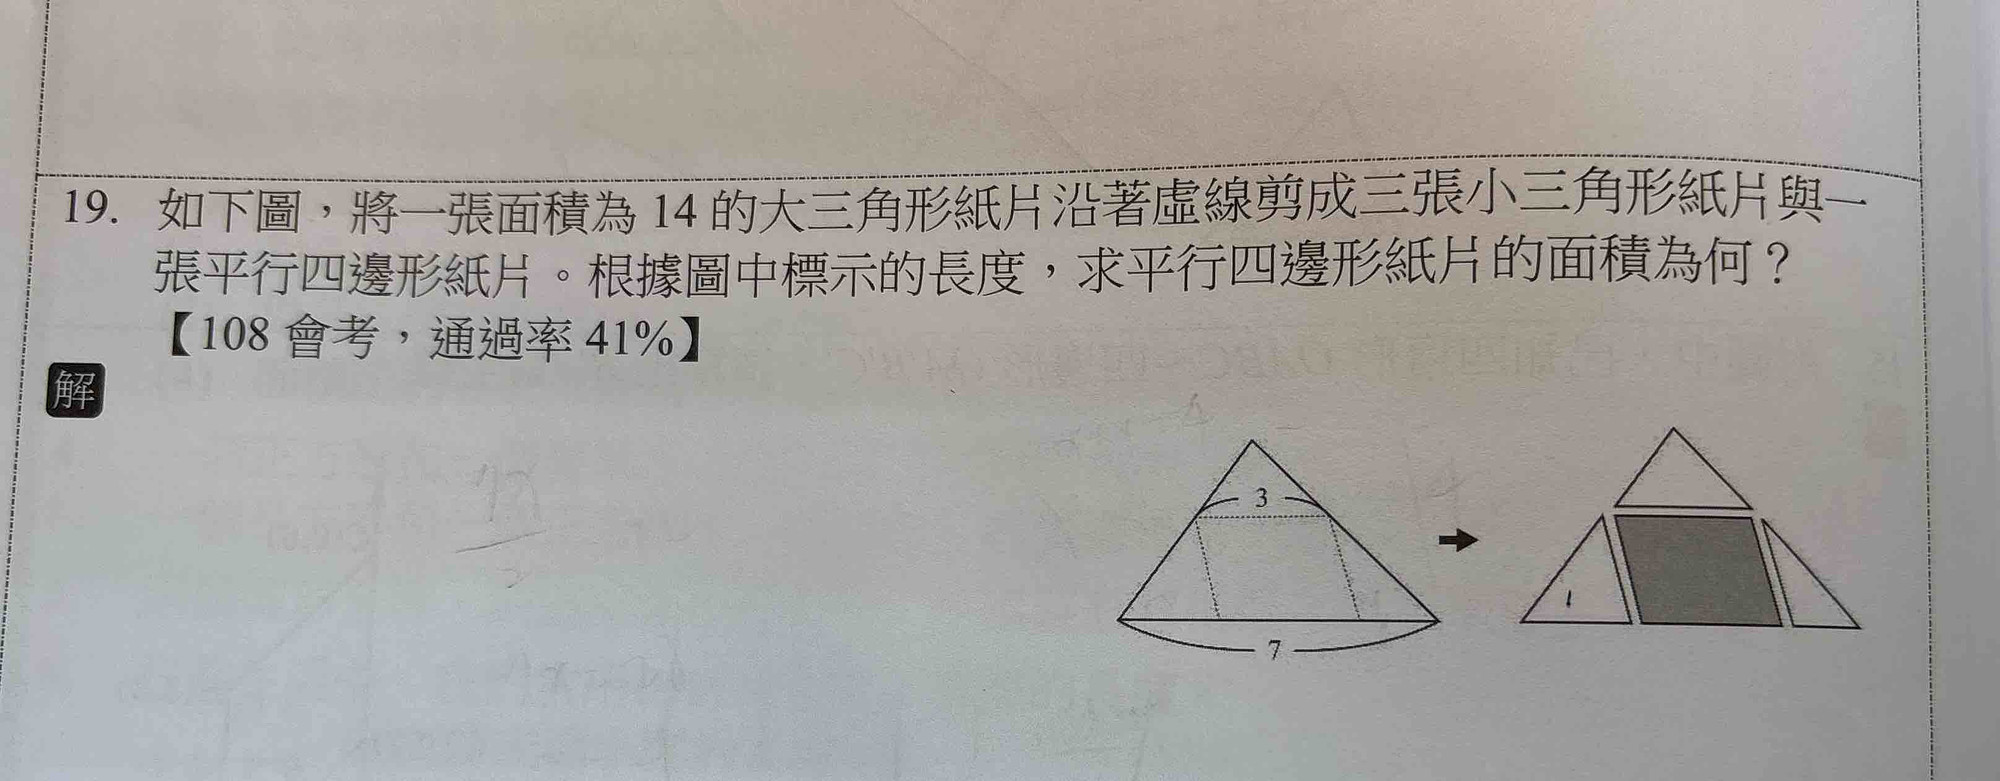 19. 如下圖，將一張面積為 14 的大三角形紙片沿著虛線剪成三張小三角形紙片與一
張平行四邊形紙片。根據圖中標示的長度，求平行四邊形紙片的面積為何？
【108 會考，通過率 41%】
解
3
7